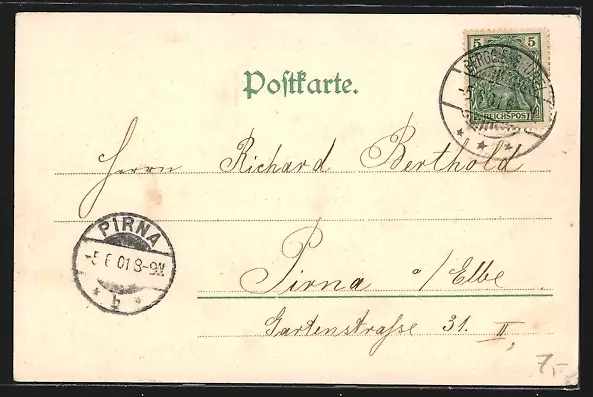 5 5
REICHSPOST
Postkarte.
Herrn Richard Berthold
PIRNA
-5 6 01 8-9V.
b
Pirna a/Elbe.
Gartenstraße 31. II,
7,-